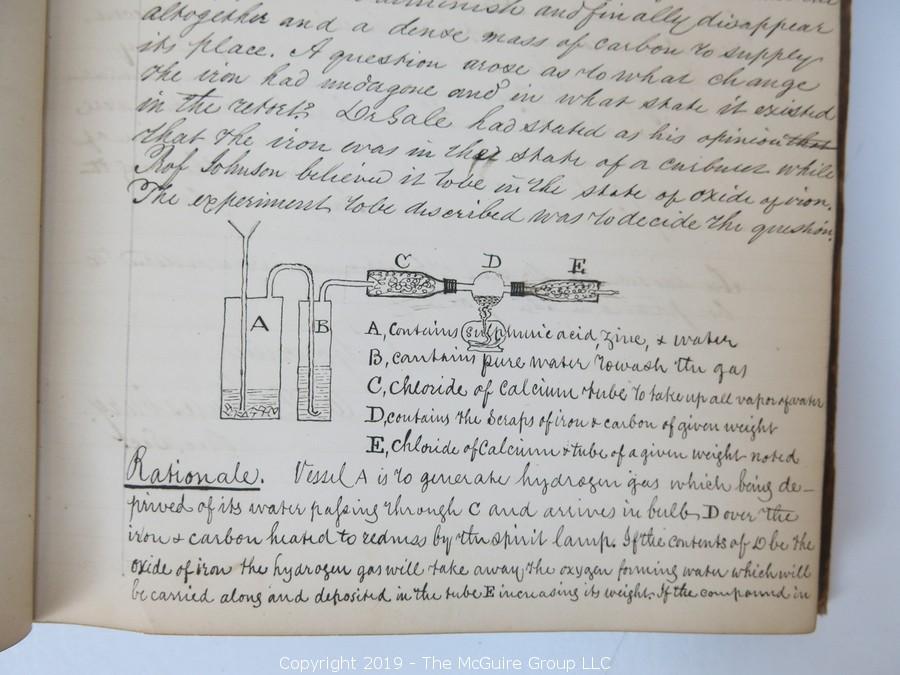 diminish and finally disappear
altogether and a dense mass of carbon to supply
its place. A question arose as to what change
the iron had undagone and in what state it existed
in the retort. Dr Gale had stated as his opinion that
that the iron was in the state of a carburet while
Prof Johnson believed it to be in the state of oxide of iron.
The experiment to be described was to decide the question.
C D E
A B
A, Contains sulphuric acid, zinc, & water
B, contains pure water to wash the gas
C, Chloride of Calcium tube to take up all vapor of water
D, contains the Scraps of iron & carbon of given weight
E, Chloride of Calcium & tube of a given weight noted
Rationale. Vessel A is to generate hydrogen gas which being de-
prived of its water paſsing through C and arrives in bulb D over the
iron & carbon heated to redness by the spirit lamp. If the contents of D be the
oxide of iron the hydrogen gas will take away the oxygen forming water which will
be carried along and deposited in the tube E increasing its weight. If the compound in
Copyright 2019 - The McGuire Group LLC